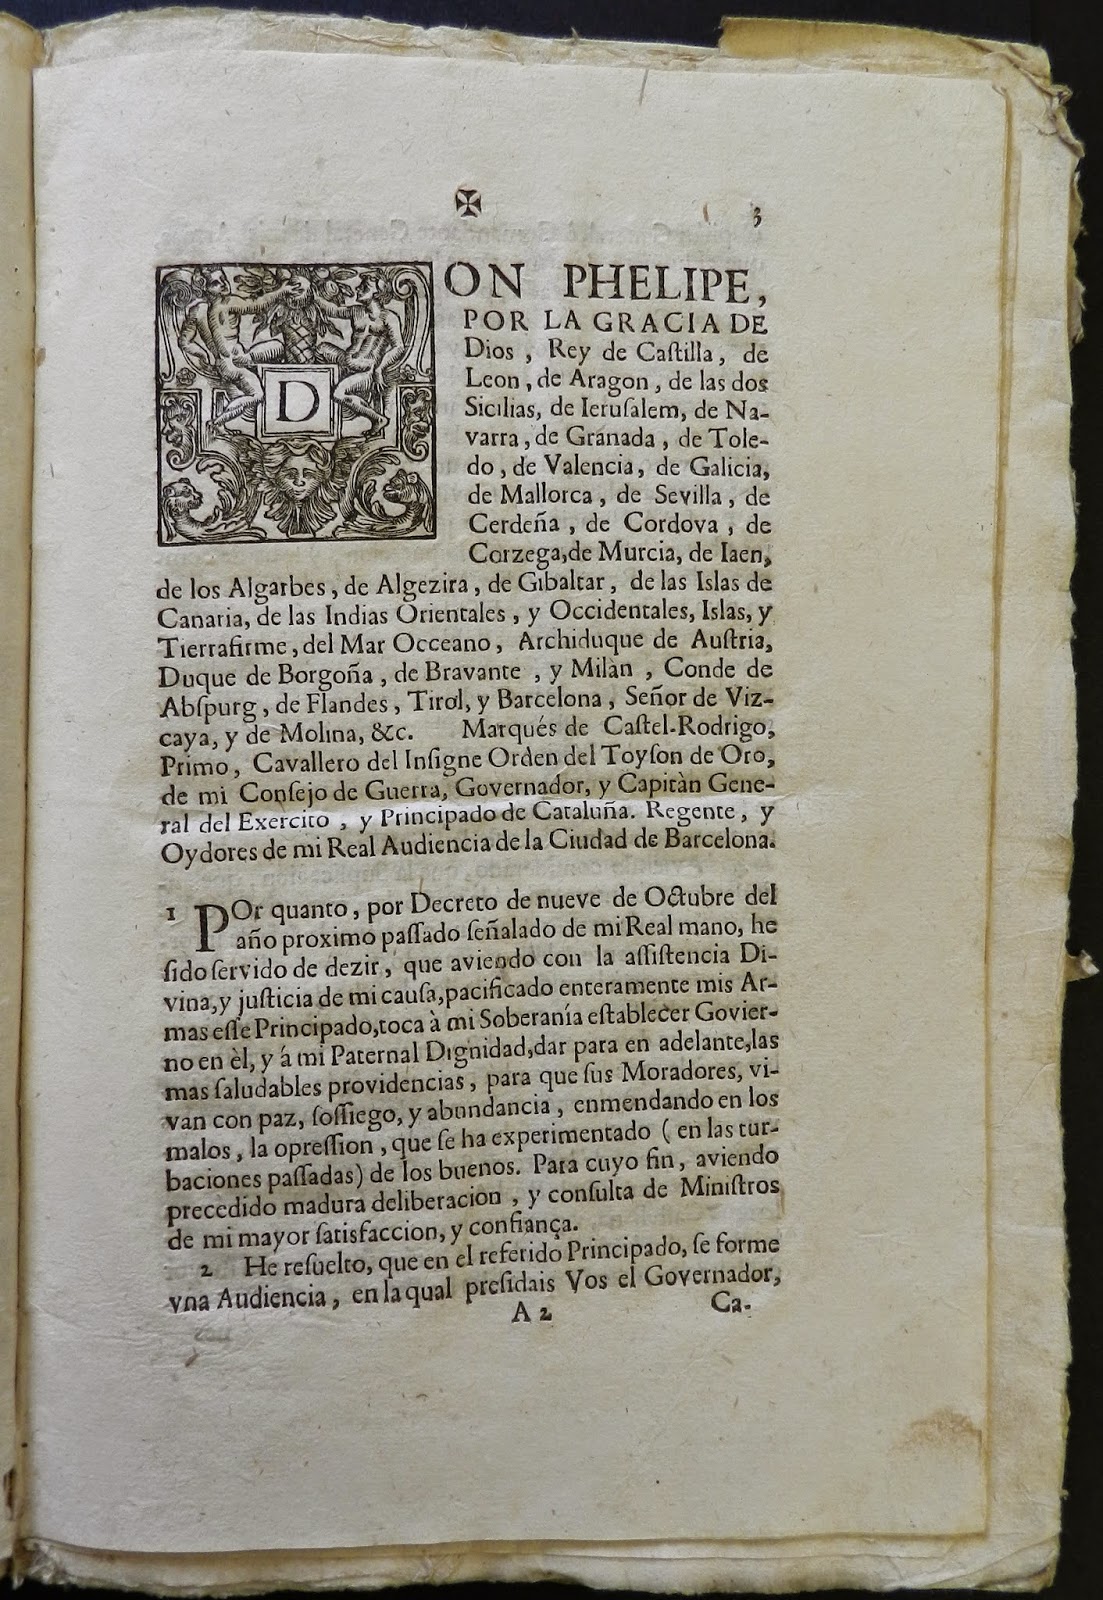 3
DON PHELIPE,
POR LA GRACIA DE
Dios , Rey de Caſtilla , de
Leon , de Aragon , de las dos
Sicilias, de Ieruſalem, de Na-
varra , de Granada , de Tole-
do , de Valencia , de Galicia,
de Mallorca , de Sevilla , de
Cerdeña , de Cordova , de
Corzega,de Murcia, de Iaen,
de los Algarbes , de Algezira , de Gibaltar , de las Islas de
Canaria, de las Indias Orientales , y Occidentales, Islas, y
Tierrafirme , del Mar Occeano , Archiduque de Auſtria,
Duque de Borgoña , de Bravante , y Milàn , Conde de
Abſpurg , de Flandes , Tirol, y Barcelona , Señor de Viz-
caya, y de Molina, &c. Marqués de Caſtel-Rodrigo,
Primo , Cavallero del Inſigne Orden del Toyſon de Oro,
de mi Conſejo de Guerra, Governador, y Capitàn Gene-
ral del Exercito , y Principado de Cataluña. Regente , y
Oydores de mi Real Audiencia de la Ciudad de Barcelona.
1 POr quanto , por Decreto de nueve de Octubre del
año proximo paſſado ſeñalado de mi Real mano, he
ſido ſervido de dezir , que aviendo con la aſſiſtencia Di-
vina,y juſticia de mi cauſa,pacificado enteramente mis Ar-
mas eſſe Principado,toca à mi Soberanía eſtablecer Govier-
no en èl, y á mi Paternal Dignidad,dar para en adelante,las
mas ſaludables providencias , para que ſus Moradores, vi-
van con paz, ſoſſiego, y abundancia , enmendando en los
malos , la opreſſion , que ſe ha experimentado ( en las tur-
baciones paſſadas) de los buenos. Para cuyo fin , aviendo
precedido madura deliberacion , y conſulta de Miniſtros
de mi mayor ſatisfaccion, y confiança.
2 He reſuelto, que en el referido Principado, ſe forme
vna Audiencia , en la qual preſidais Vos el Governador,
A 2 Ca-